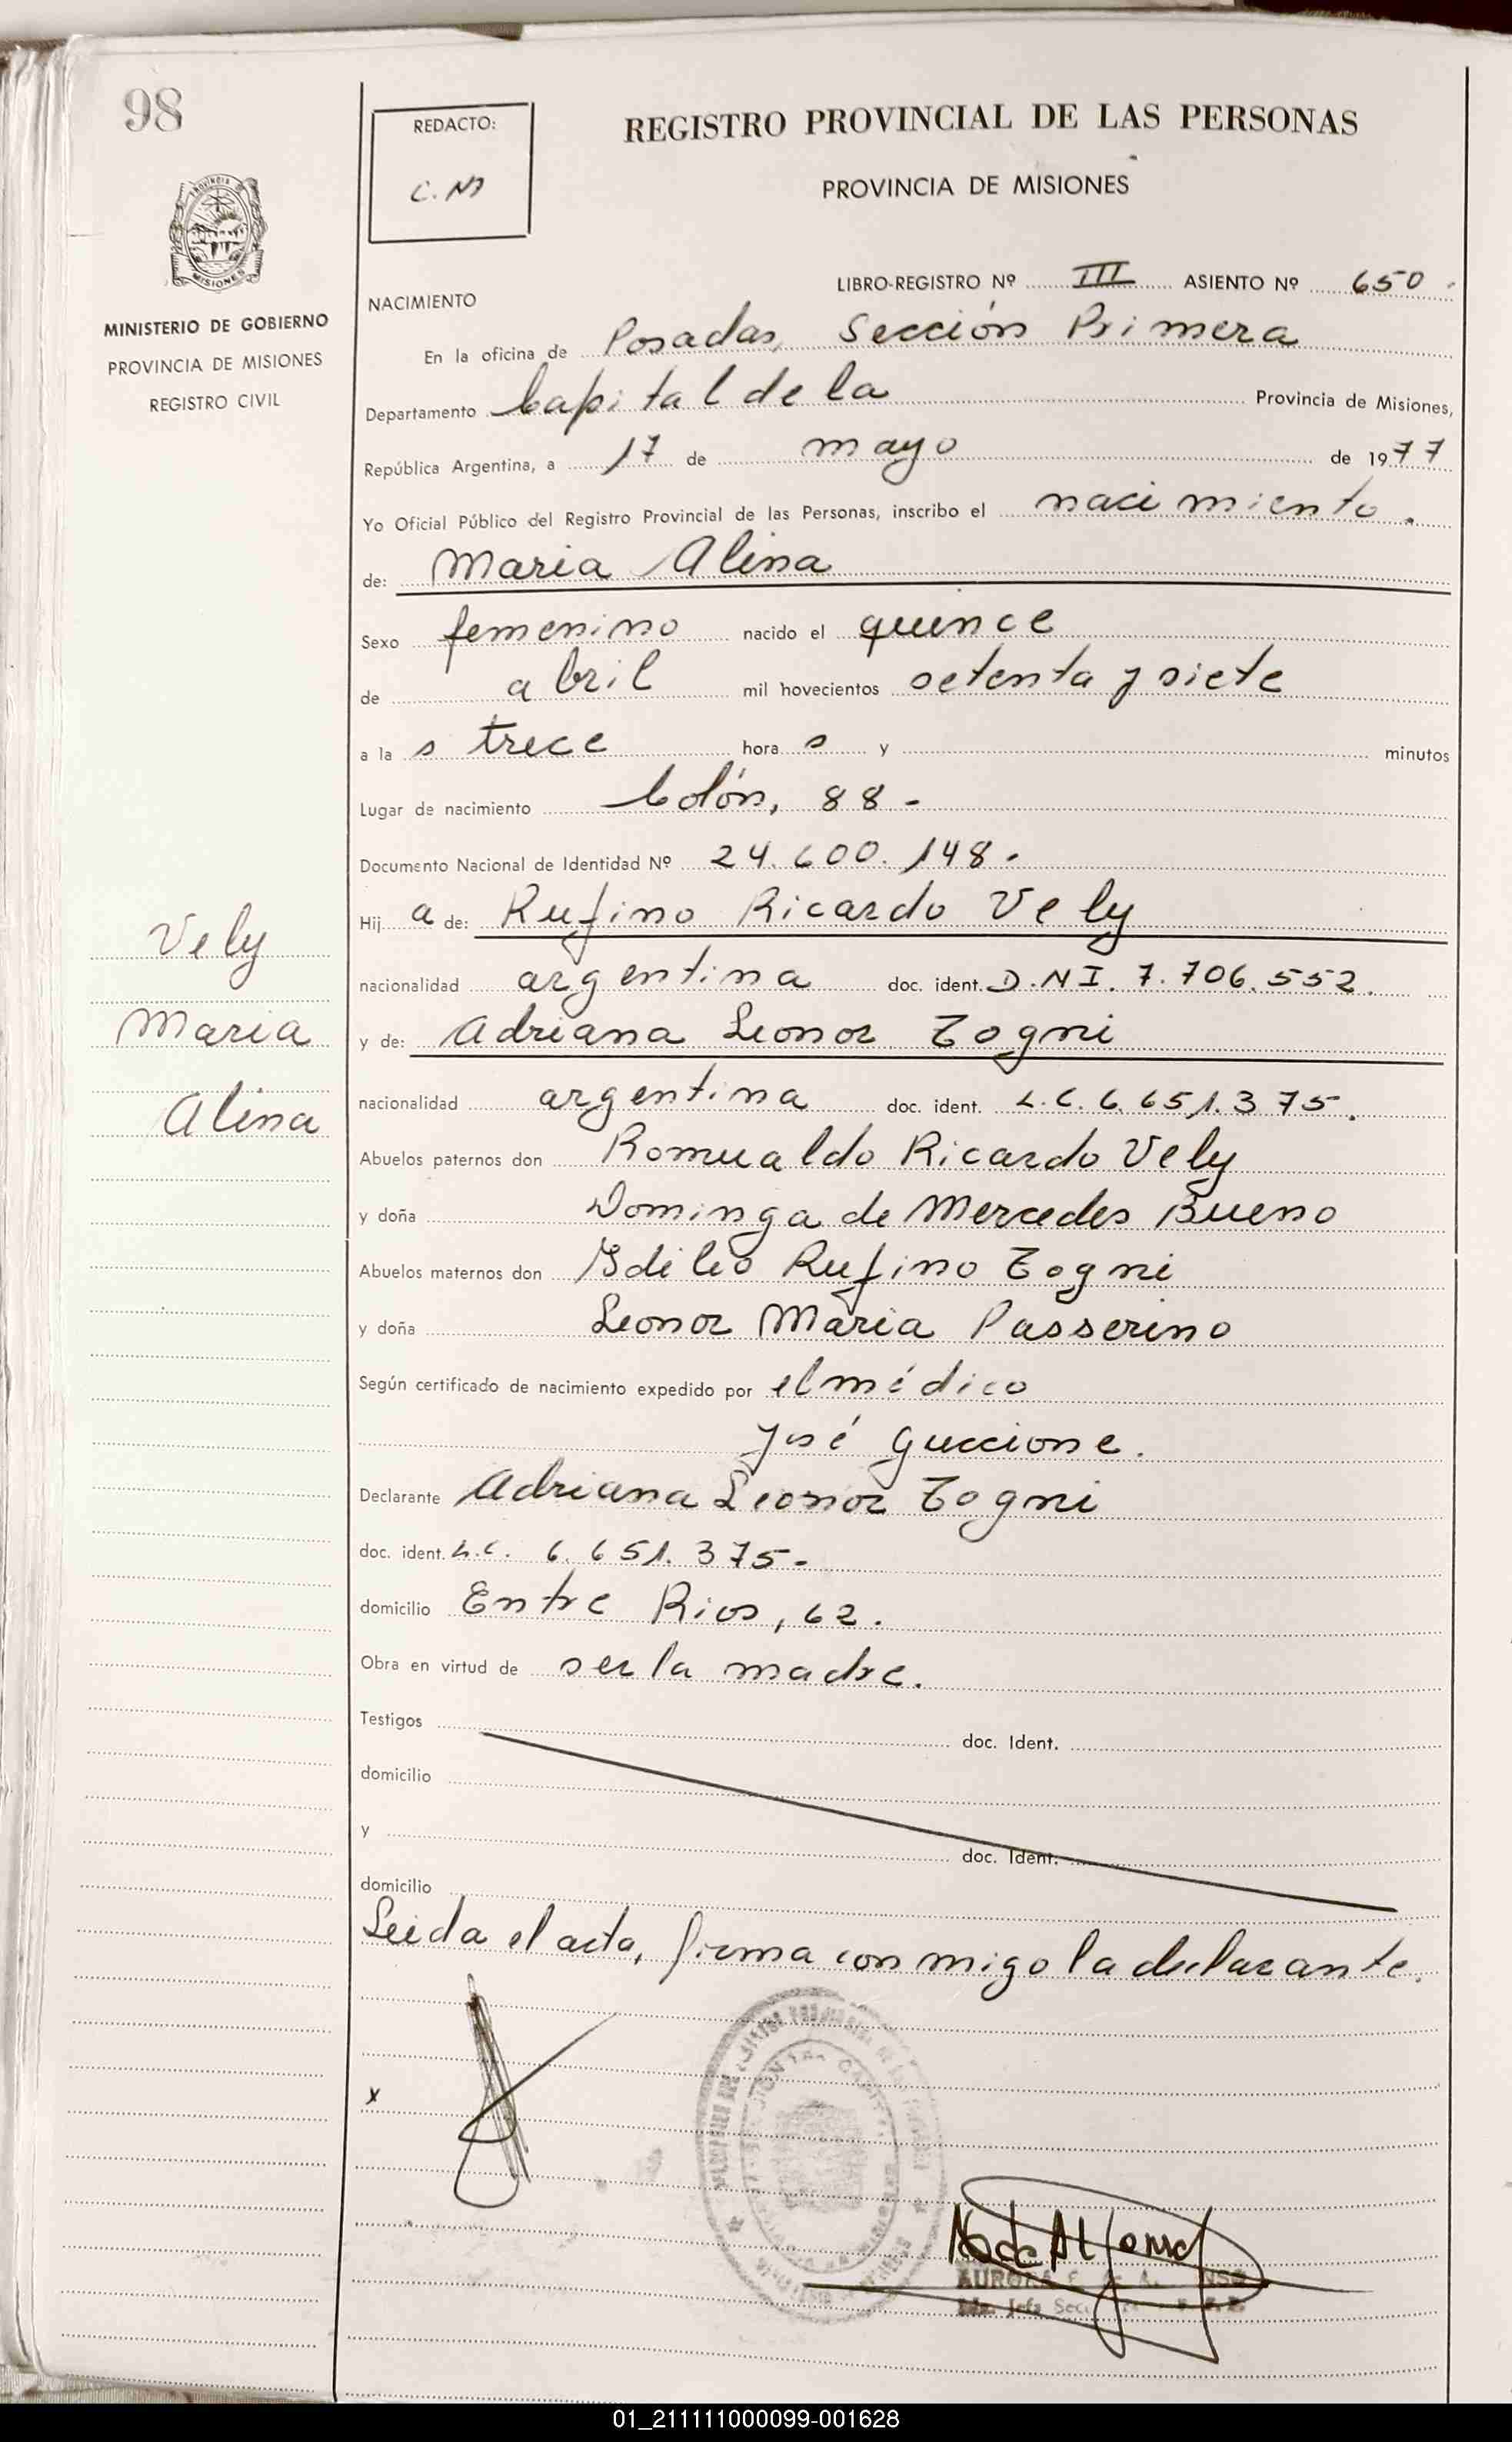 98
REDACTO:
C. M
REGISTRO PROVINCIAL DE LAS PERSONAS
PROVINCIA DE MISIONES
MISIONES
MINISTERIO DE GOBIERNO
PROVINCIA DE MISIONES
REGISTRO CIVIL
LIBRO-REGISTRO Nº III ASIENTO Nº 650.
NACIMIENTO
En la oficina de Posadas, Sección Primera
Departamento Capital de la Provincia de Misiones,
República Argentina, a 17 de mayo de 1977
Yo Oficial Público del Registro Provincial de las Personas, inscribo el nacimiento.
de: Maria Alina
Sexo femenino nacido el quince
de abril mil hovecientos setenta y siete
a la s trece hora s y minutos
Lugar de nacimiento Colón, 88-
Documento Nacional de Identidad Nº 24.600.148.
Hij a de: Rufino Ricardo Vely
nacionalidad argentina doc. ident. D.N I. 7.706.552.
y de: Adriana Leonor Togni
nacionalidad argentina doc. ident. L.C. 6.651.375.
Abuelos paternos don Romualdo Ricardo Vely
y doña Dominga de Mercedes Bueno
Abuelos maternos don Idilio Rufino Togni
y doña Leonor Maria Passerino
Según certificado de nacimiento expedido por el médico
José Guccione.
Declarante Adriana Leonor Togni
doc. ident. L.C. 6.651.375-
domicilio Entre Rios, 62.
Obra en virtud de ser la madre.
Testigos doc. Ident.
domicilio
y doc. Ident.
domicilio
Leida el acta, firma con migo la declarante.
Vely
Maria
Alina
x
AURORA
Jefa Secc
01_211111000099-001628